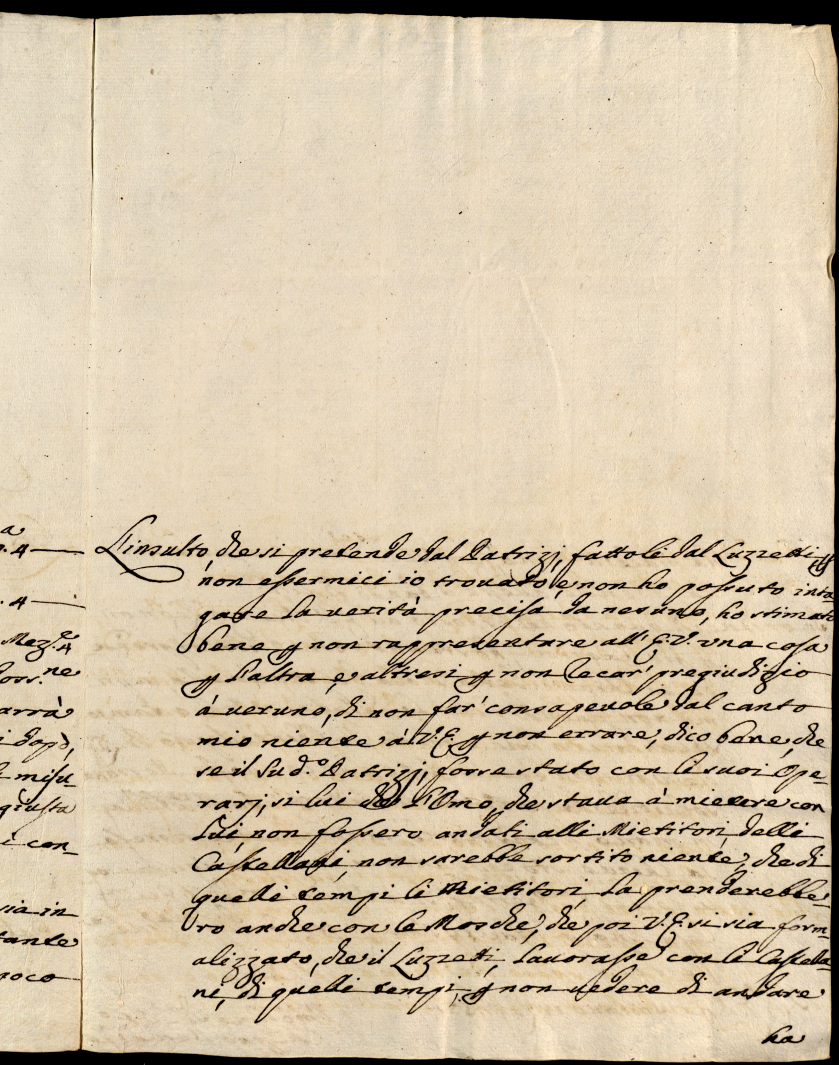 a
. 4
. 4
Mez.e 4
Poss.ne
arrà
i dopò,
misu-
giusta
i con-
sia in
tante
poco
L'insulto, che si pretende dal Patrizj, fattoli dal Luzzetti
non essermici io trovado, e non ho possuto inda-
gare la verità precisa da nesuno, ho stimato
bene p non rappresentare all'E.V. una cosa
p l'altra, e altresi p non recar' pregiudizio
á veruno, di non far' consapevole dal canto
mio niente á V.E. p non errare, dico bene, che
se il Sud.o Patrizj, fosse stato con li suoi Ope-
rarj, si lui che l'Omo, che stava á mietere con
Lui, non fossero andati alli Mietitori delli
Castellani, non sarebbe sortito niente, che di
quelli tempi li Mietitori la prenderebbe-
ro anche con le Mosche, che poi V.E. si sia form-
alizzato, che il Luzzetti, lavorasse con li Castella-
ni, di quelli tempi, p non vedere di andare
ha